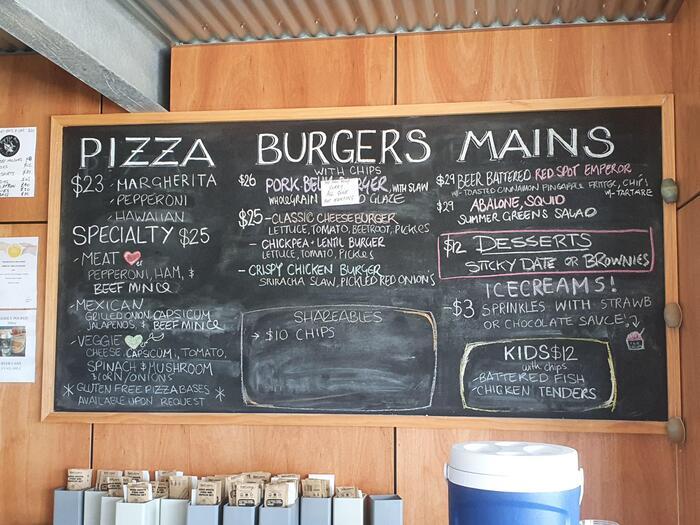 PIZZA
$23 - MARGHERITA
- PEPPERONI
- HAWAIIAN
SPECIALTY $25
- MEAT
PEPPERONI, HAM, &
BEEF MINCE
- MEXICAN
GRILLED ONION, CAPSICUM,
JALAPENOS, & BEEF MINCE
- VEGGIE
CHEESE, CAPSICUM, TOMATO,
SPINACH & MUSHROOM
& CORN/ONIONS
* GLUTEN FREE PIZZA BASES *
AVAILABLE UPON REQUEST
BURGERS
WITH CHIPS
$26 PORK WITH SLAW
WHOLEGRAIN GLAZE
$25 - CLASSIC CHEESEBURGER
LETTUCE, TOMATO, BEETROOT, PICKLES
- CHICKPEA + LENTIL BURGER
LETTUCE, TOMATO, PICKLES
- CRISPY CHICKEN BURGER
SRIRACHA SLAW, PICKLED RED ONIONS
SHAREABLES
→ $10 CHIPS
MAINS
$29 BEER BATTERED RED SPOT EMPEROR
W- TOASTED CINNAMON PINEAPPLE FRITTER, CHIPS
W- TARTARE
$29 ABALONE, SQUID
SUMMER GREENS SALAD
$12 DESSERTS
STICKY DATE OR BROWNIES
ICECREAMS!
- $3 SPRINKLES WITH STRAWB
OR CHOCOLATE SAUCE!
KIDS $12
with chips
- BATTERED FISH
- CHICKEN TENDERS